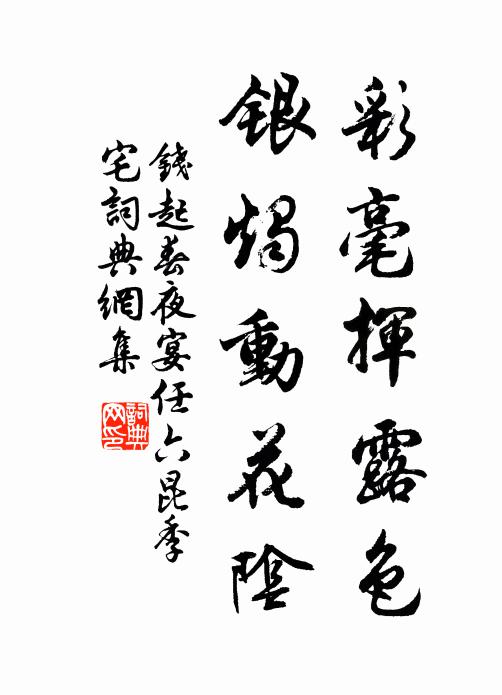 彩毫揮露色
銀燭動花陰
錢起春夜宴任六昆季
宅詞典網集
詞典
网印